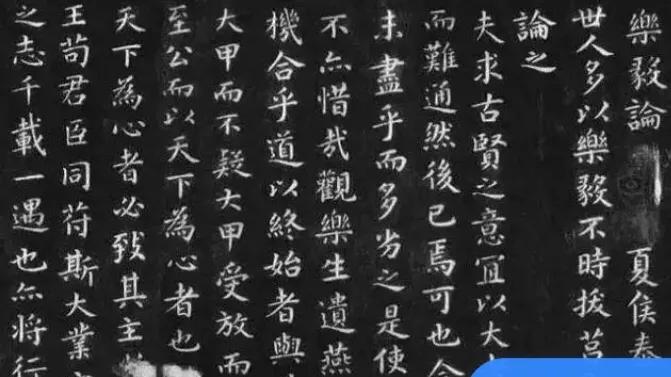 樂毅論 夏侯泰
世人多以樂毅不時拔莒
論之
夫求古賢之意冝以大
而難通然後已焉可也今
未盡乎而多劣之是使
不亦惜哉觀樂生遺燕
機合乎道以終始者與
大甲而不疑大甲受放而
至公而以天下為心者也
天下為心者必致其主
王苟君臣同符斯大業
之志千載一遇也亦将行